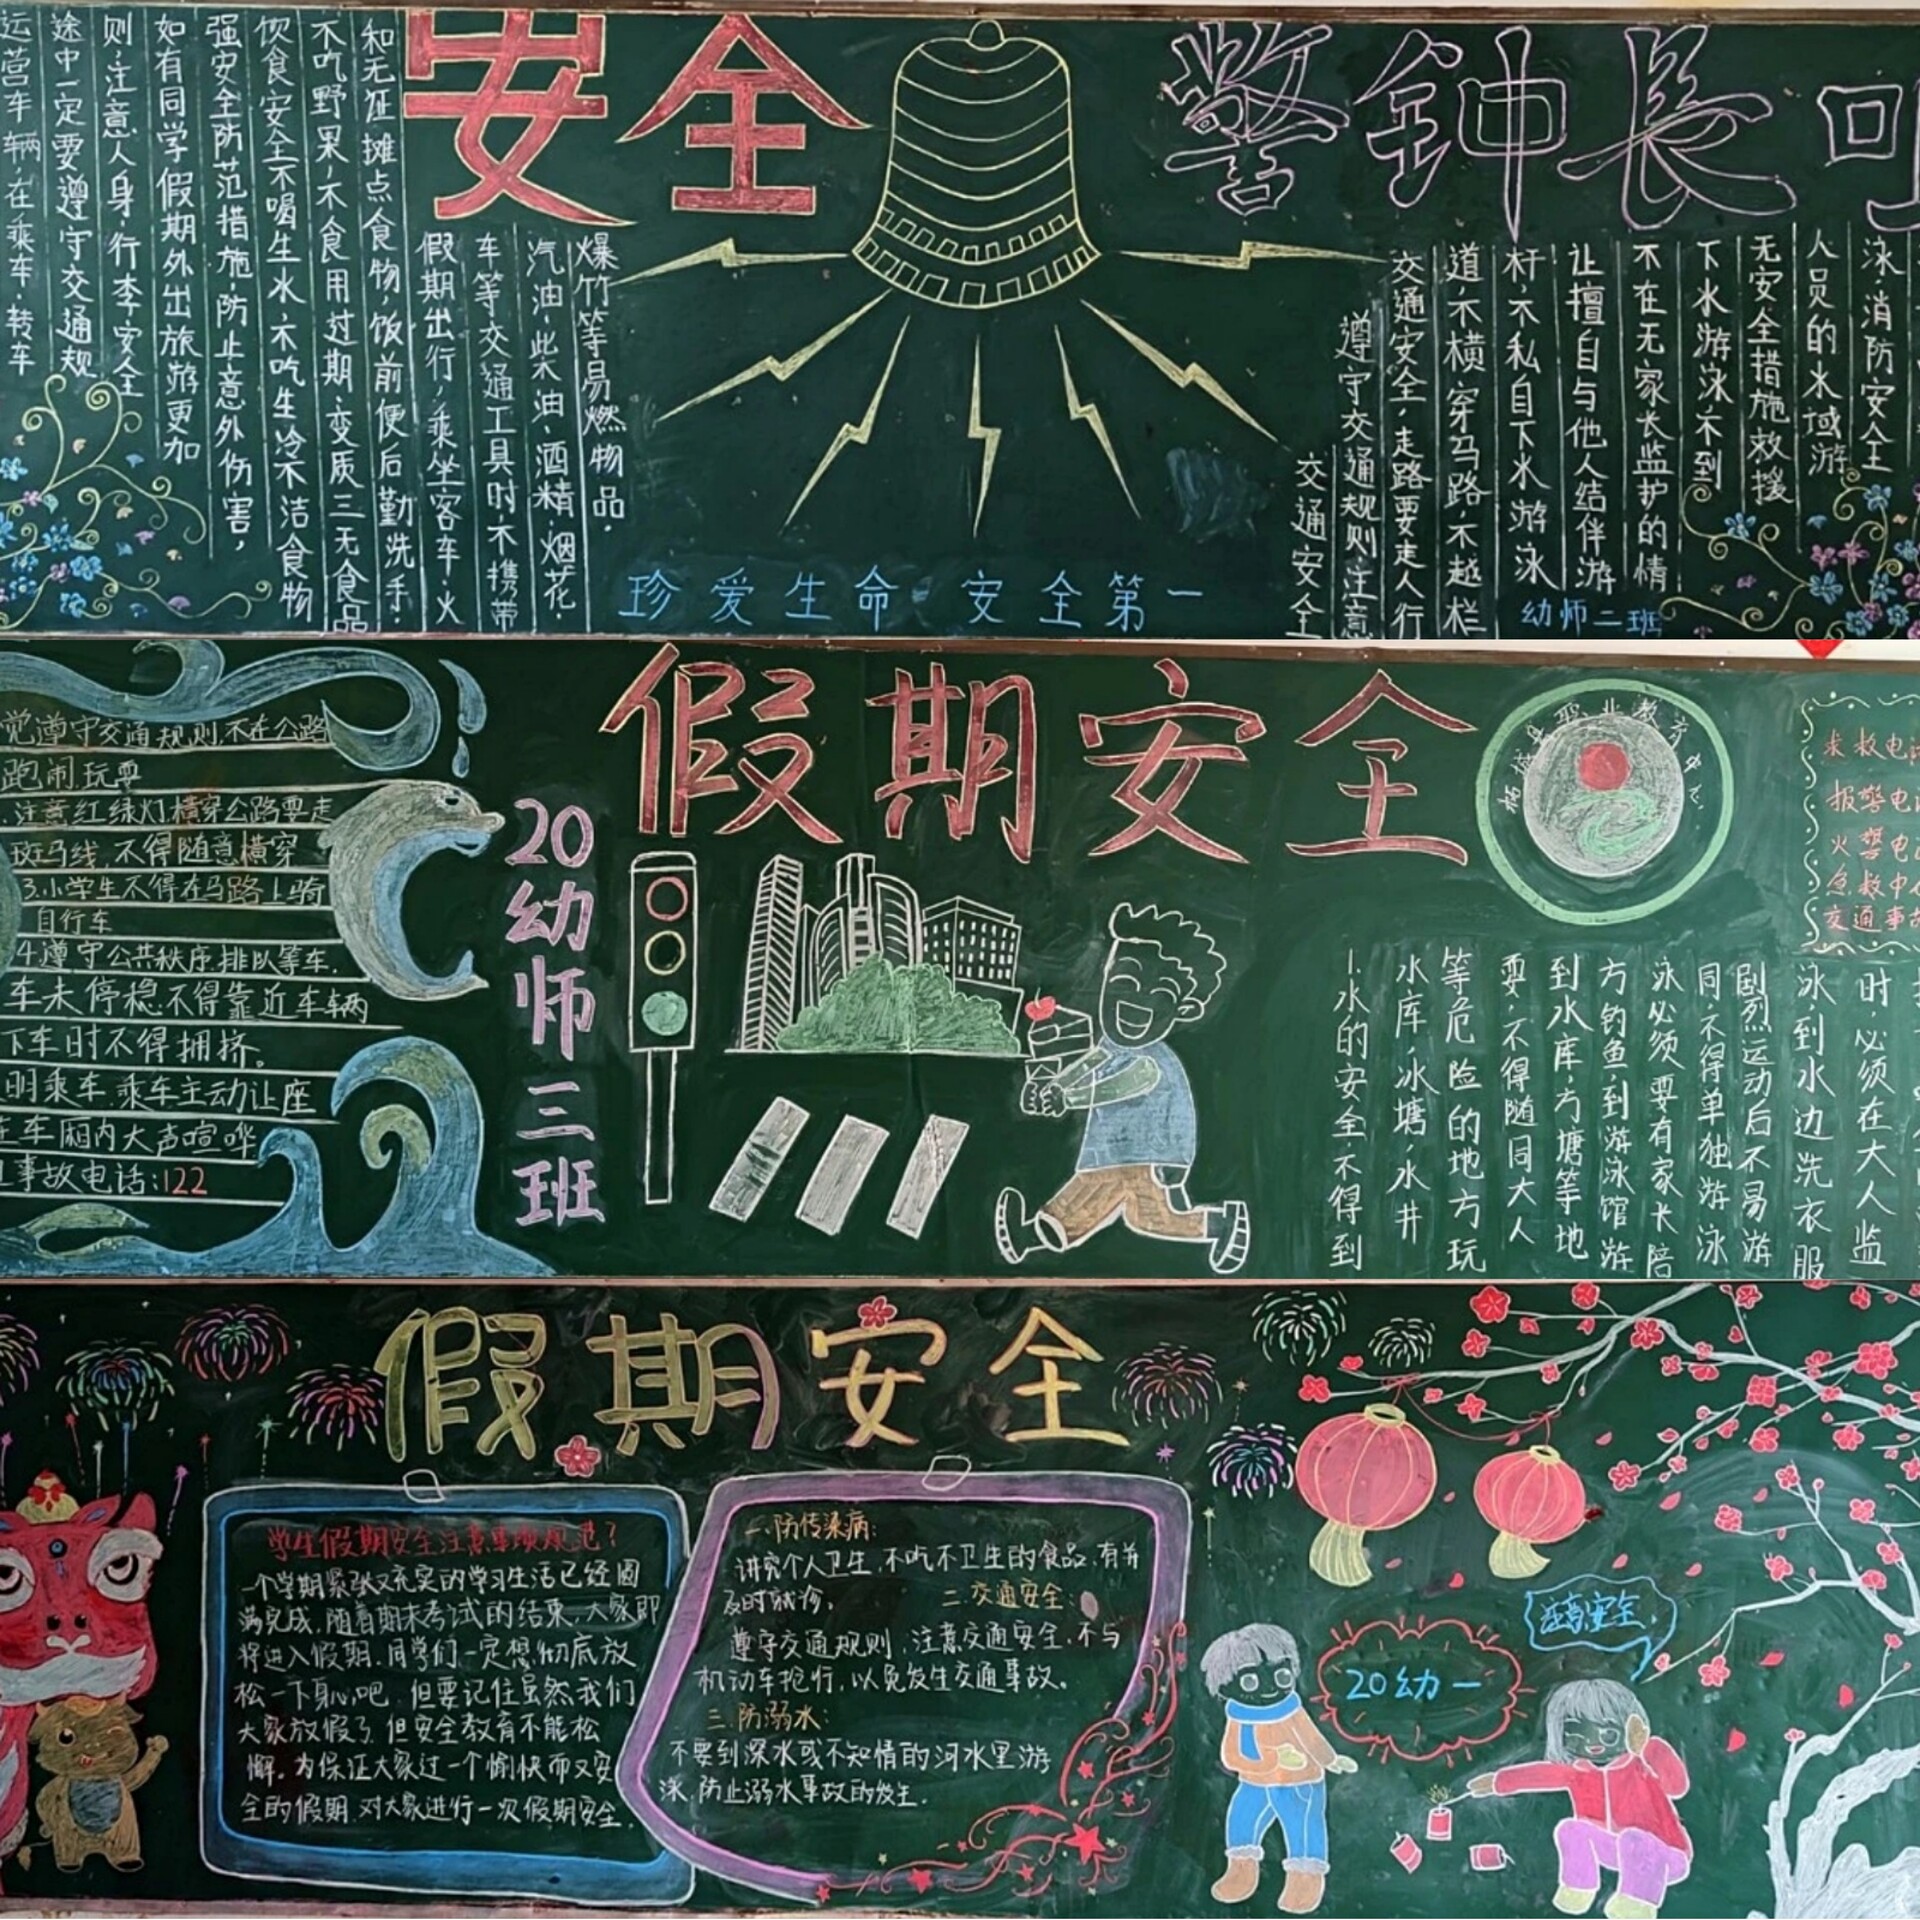 安全
警钟长
泳、消防安全
人员的水域游
无安全措施救援
下水游泳、不到
不在无家长监护的情
让擅自与他人结伴游
杆,不私自下水游泳
道,不横穿马路,不越栏
交通安全,走路要走人行
遵守交通规则注意
交通安全
爆竹等易燃物品。
汽油、柴油、酒精、烟花、
车等交通工具时,不携带
假期出行,乘坐客车、火
和无证摊点食物,饭前便后勤洗手,
不吃野果,不食用过期、变质三无食品
饮食安全不喝生水,不吃生冷不洁食物
强安全防范措施,防止意外伤害,
如有同学假期外出旅游更加
则,注意人身、行李安全
途中一定要遵守交通规
运营车辆,在乘车、转车
珍爱生命 安全第一
幼师二班
假期安全
20幼师三班
觉遵守交通规则,不在公路
跑闹玩耍
注意红绿灯,横穿公路要走
斑马线,不得随意横穿
3.小学生不得在马路上骑
自行车
4.遵守公共秩序,排队等车,
车未停稳不得靠近车辆
下车时不得拥挤。
明乘车,乘车主动让座
在车厢内大声喧哗
事故电话:122
职业教育中心
求救电话
报警电话
火警电话
急救中
交通事故
时,必须在大人监
泳,到水边洗衣服
剧烈运动后不易游
同,不得单独游泳
泳必须要有家长陪
方钓鱼,到游泳馆游
到水库,方塘等地
耍,不得随同大人
等危险的地方玩
水库,冰塘,水井
1.水的安全不得到
假期安全
学生假期安全注意事项规范?
一个学期紧张又充实的学习生活已经圆
满完成,随着期末考试的结束,大家即
将进入假期,同学们一定想彻底放
松一下身心吧,但要记住虽然我们
大家放假了,但安全教育不能松
懈。为保证大家过一个愉快而又安
全的假期,对大家进行一次假期安全。
一.防传染病:
讲究个人卫生,不吃不卫生的食品,有并
及时就诊。
二.交通安全:
遵守交通规则,注意交通安全,不与
机动车抢行,以免发生交通事故。
三.防溺水:
不要到深水或不知情的河水里游
泳,防止溺水事故的发生。
20幼一
注意安全,